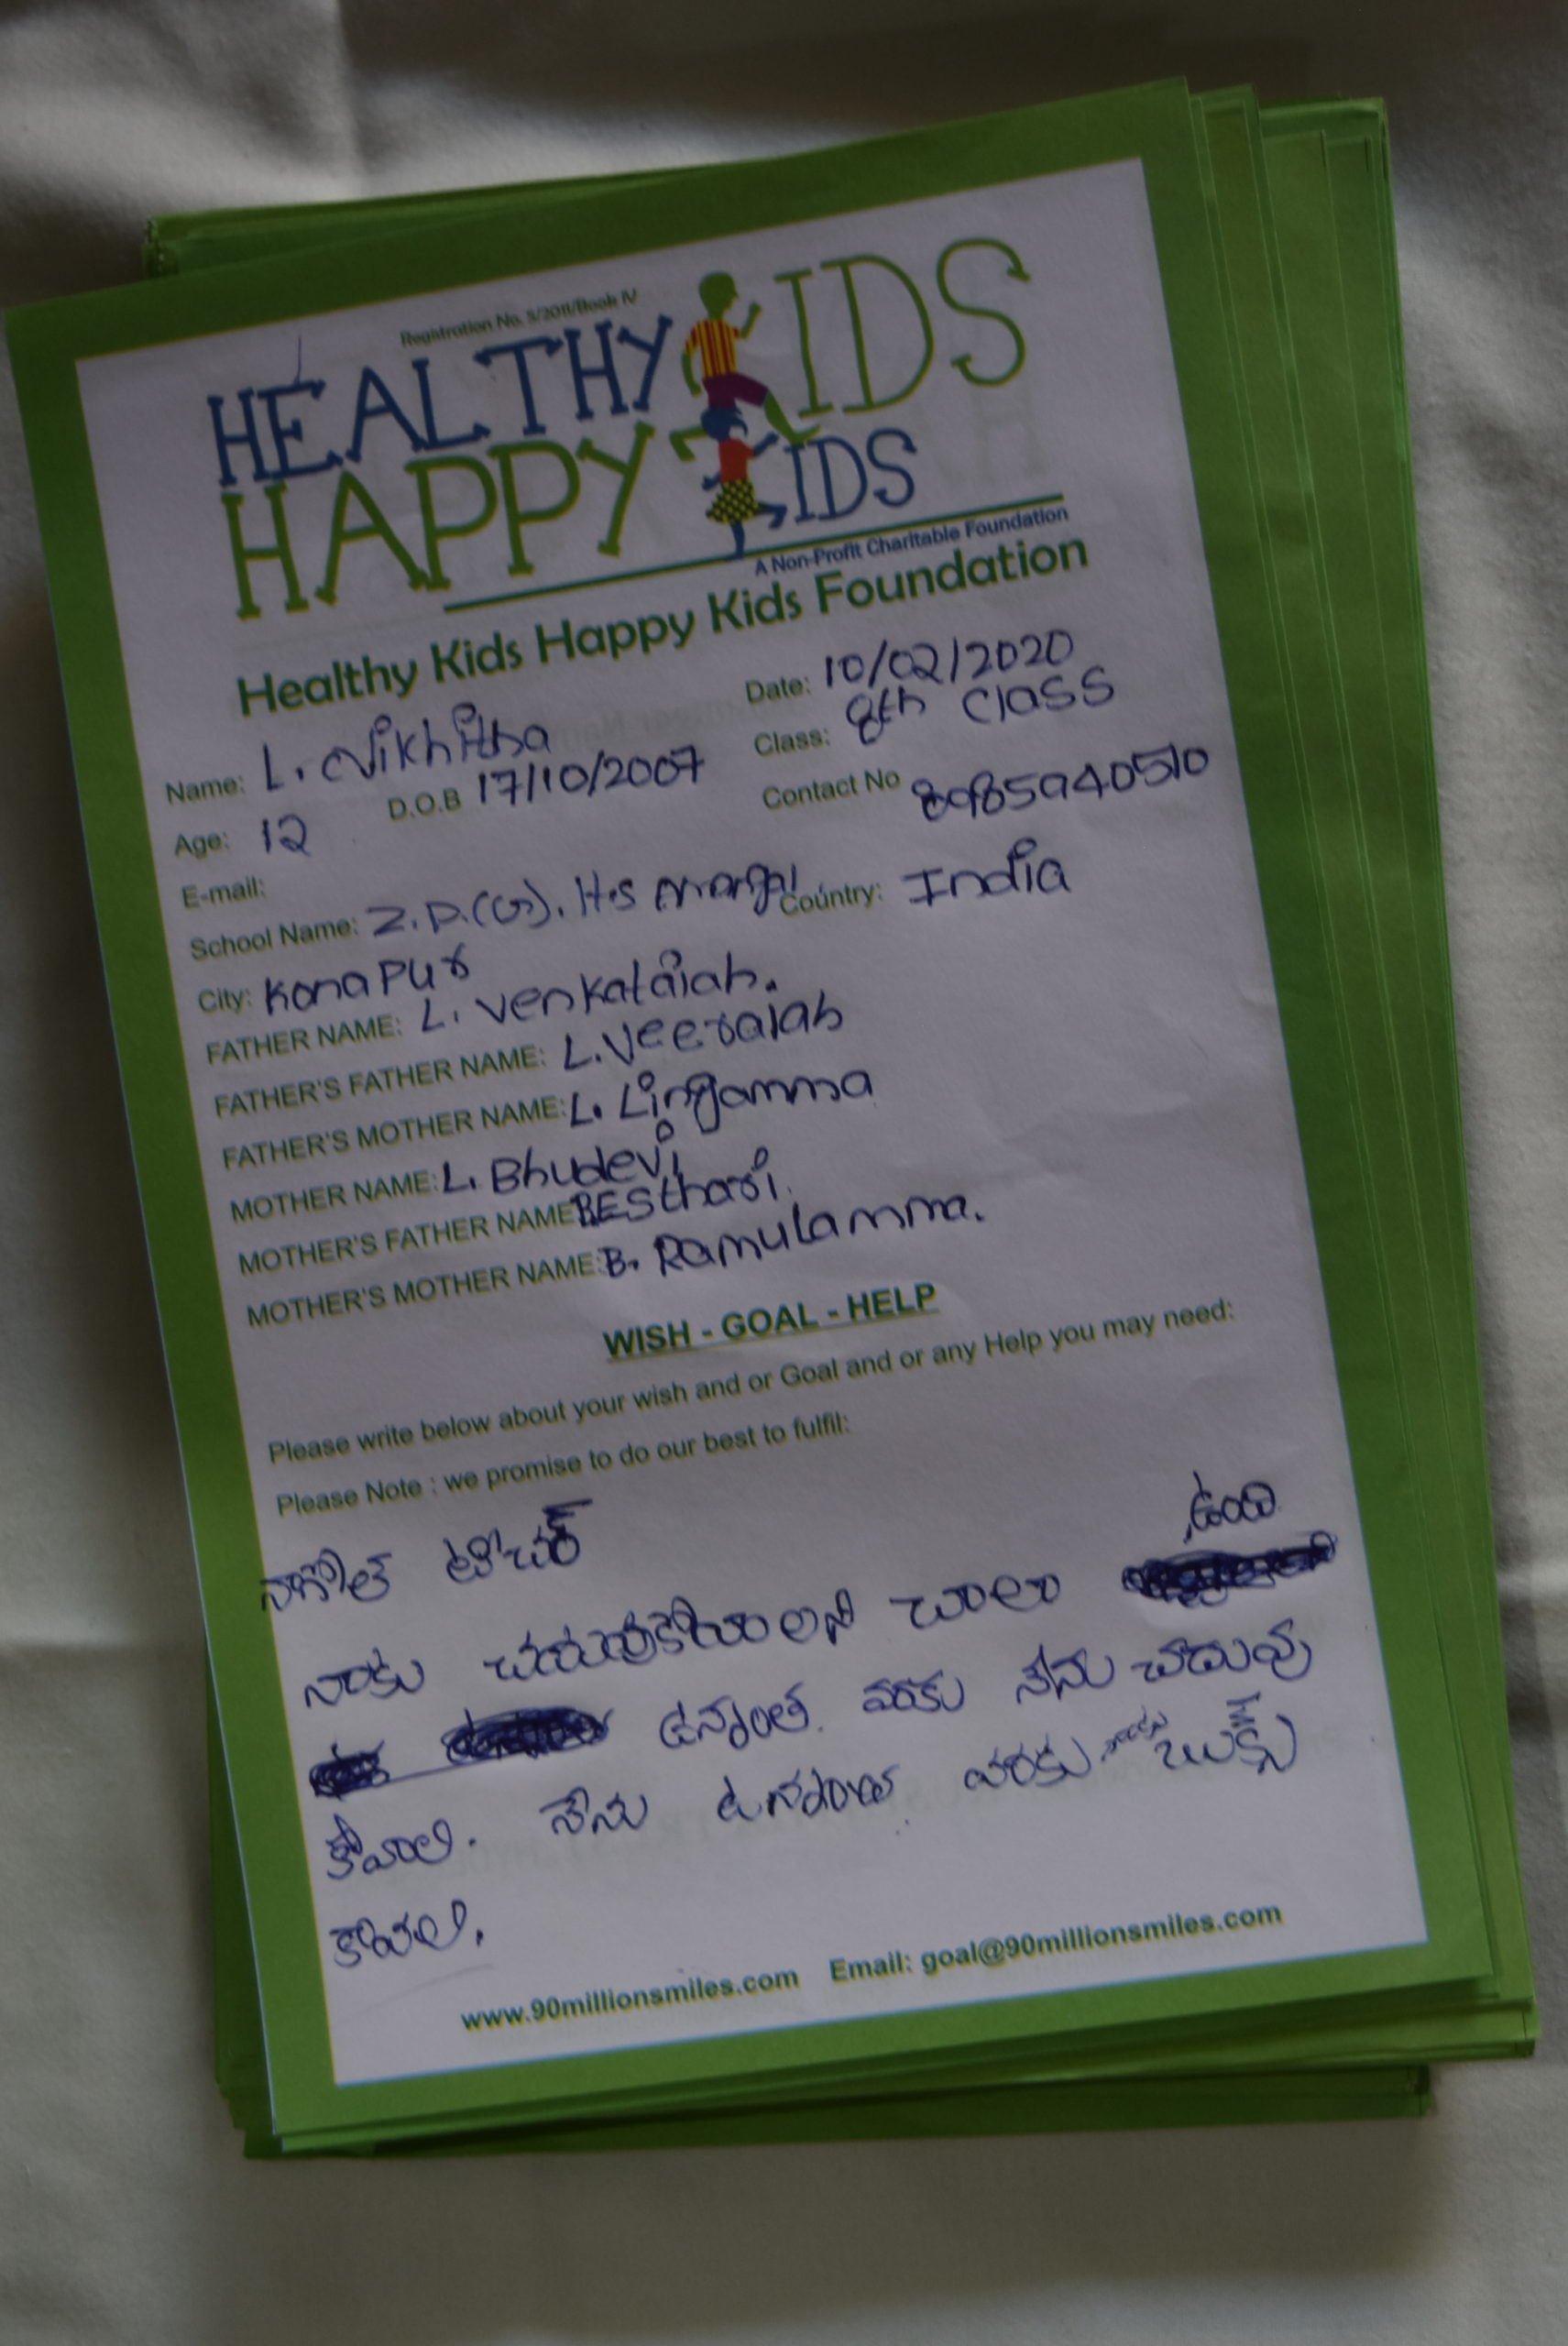 Registration No. 5/2011/Book IV
HEALTHY KIDS
HAPPY KIDS
A Non-Profit Charitable Foundation
Healthy Kids Happy Kids Foundation
Date: 10/02/2020
Name: L. Nikhitha Class: 8th class
Age: 12 D.O.B 17/10/2007 Contact No 8985940510
E-mail:
School Name: Z.P.(G). H.S Country: India
City: Konapur
FATHER NAME: L. Venkataiah.
FATHER'S FATHER NAME: L. Veeraiah
FATHER'S MOTHER NAME: L. Lingamma
MOTHER NAME: L. Bhudevi
MOTHER'S FATHER NAME: BESthari.
MOTHER'S MOTHER NAME: B. Ramulamma.
WISH - GOAL - HELP
Please write below about your wish and or Goal and or any Help you may need:
Please Note : we promise to do our best to fulfil:
టీచర్
నాకు చదువుకోవాలని చాలా ఉంది
ఉన్నంత వరకు నేను చదువు
కోవాలి. నేను వరకు బుక్స్
కావలి.
www.90millionsmiles.com Email: goal@90millionsmiles.com